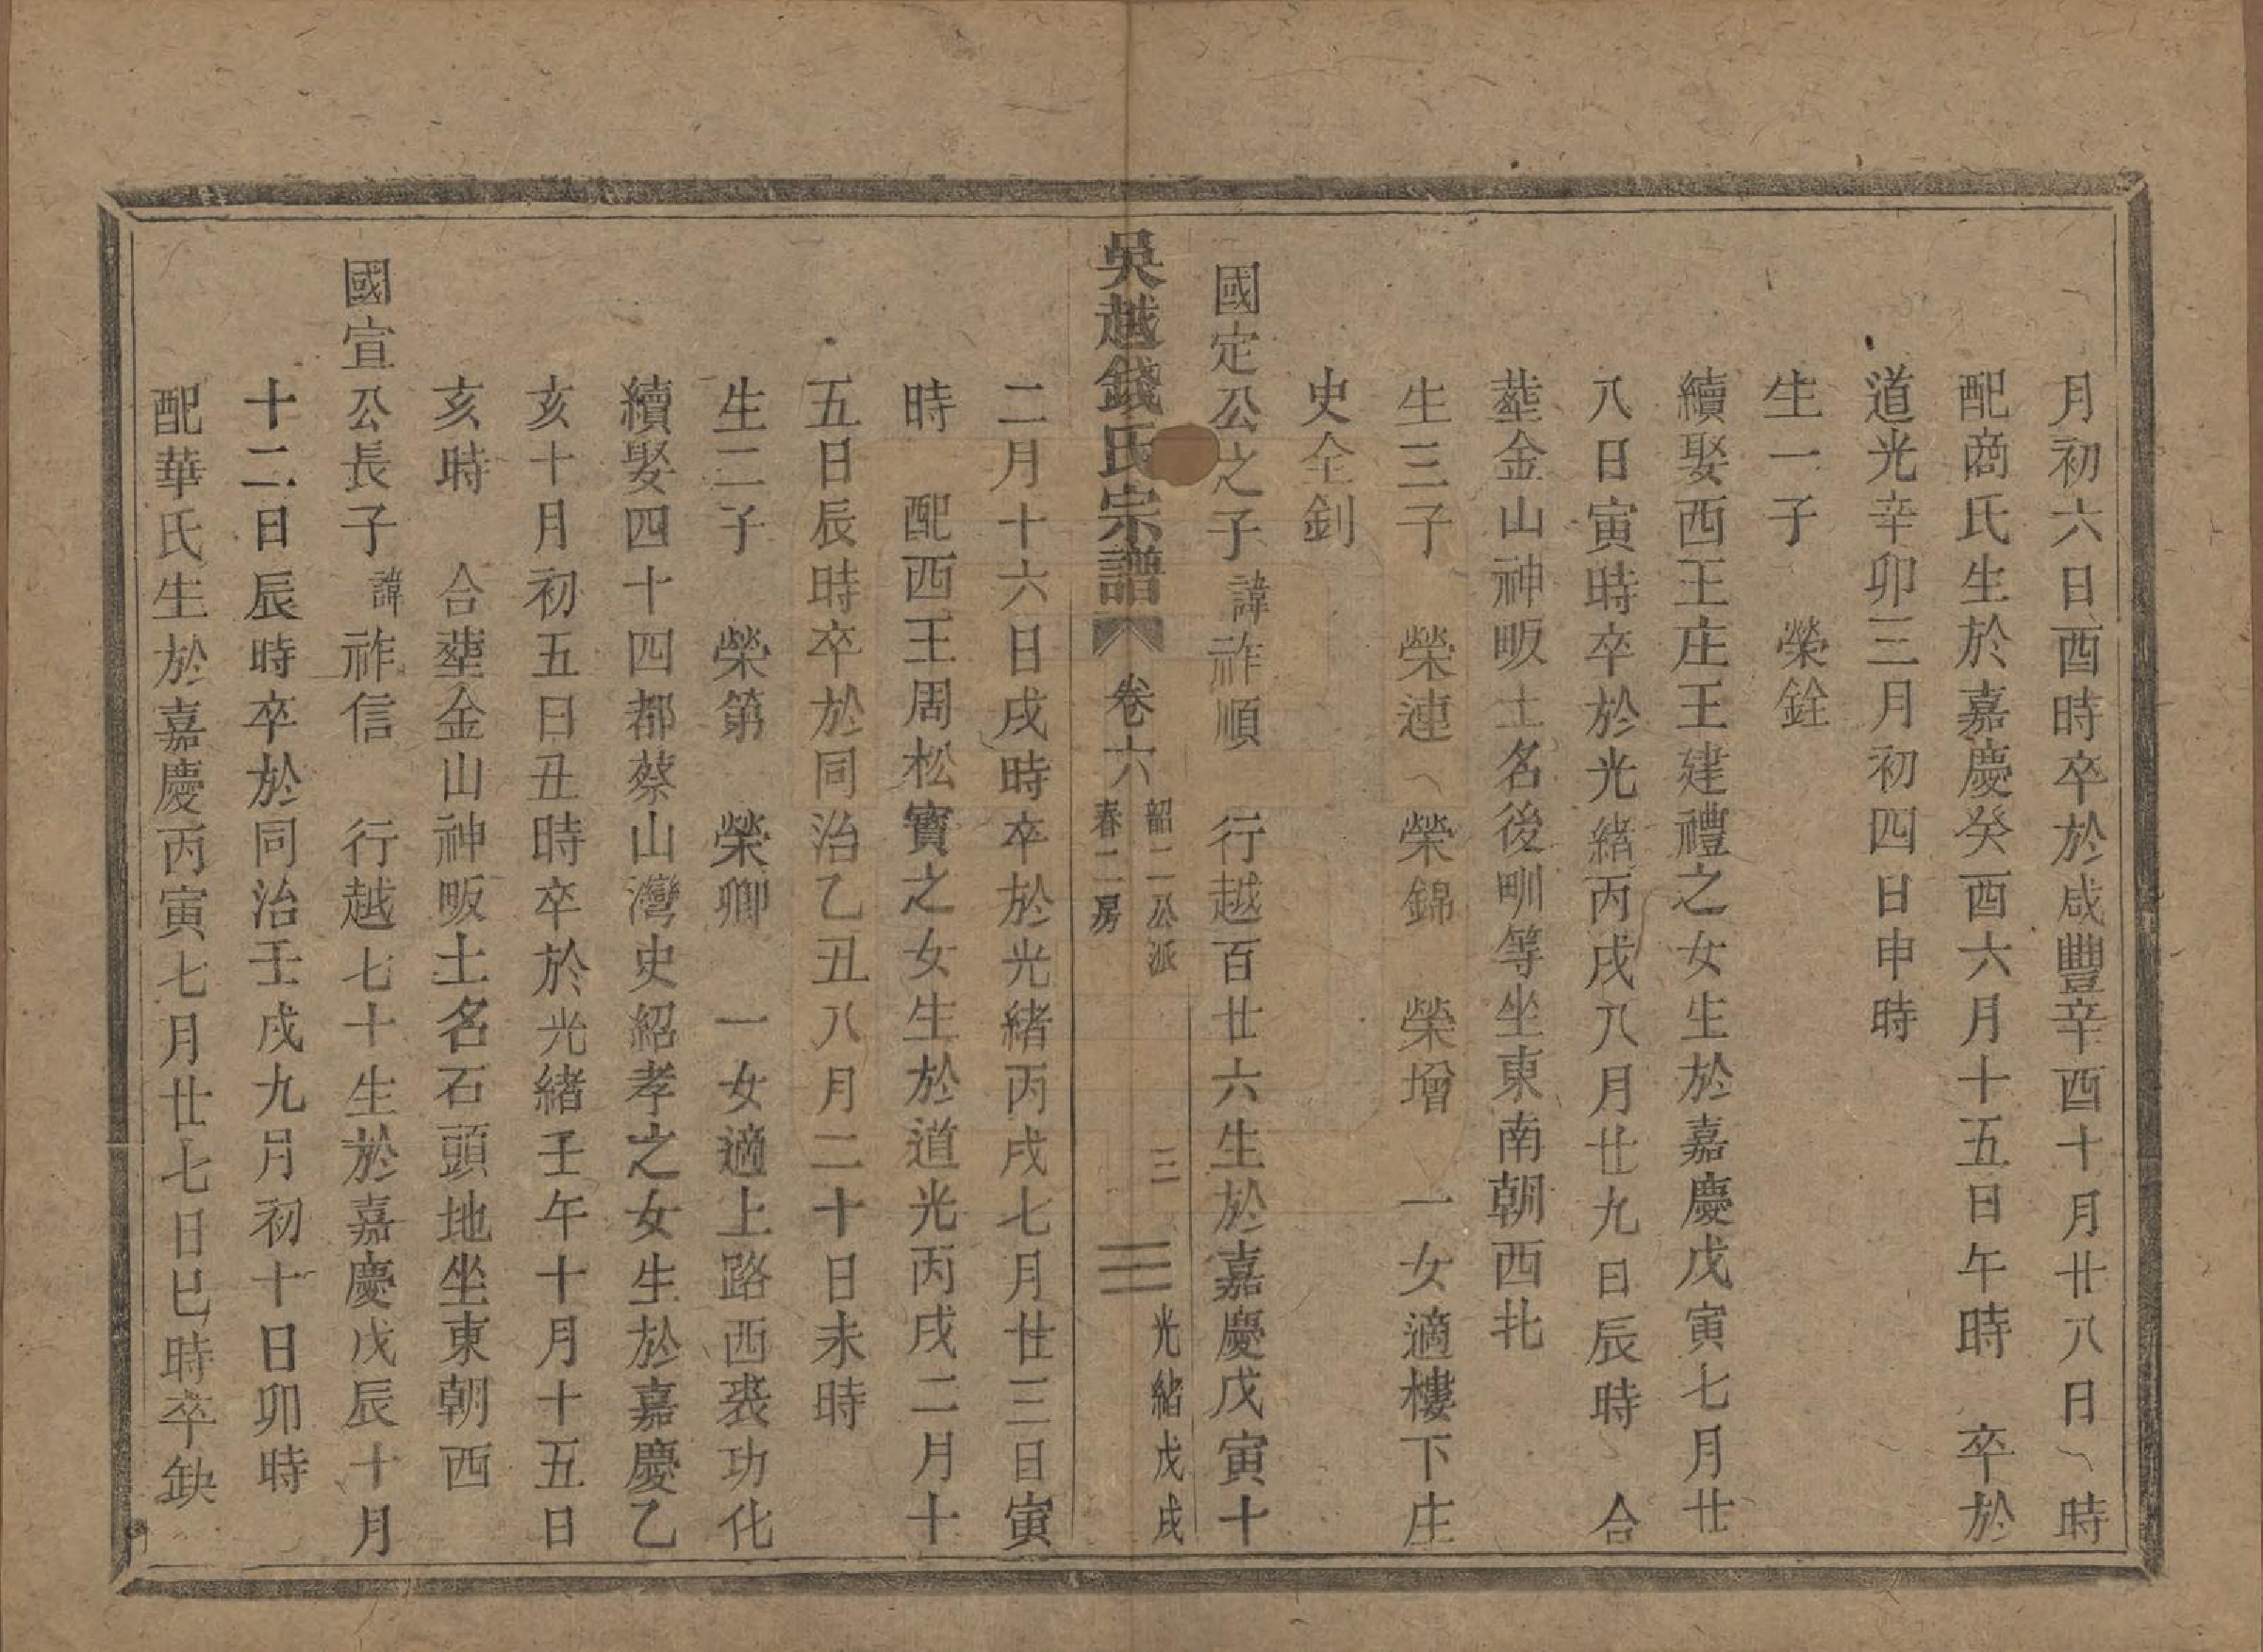 月初六日酉時卒於咸豐辛酉十月廿八日 時
配商氏生於嘉慶癸酉六月十五日午時 卒於
道光辛卯三月初四日申時
生一子 榮銓
續娶西王庄王建禮之女生於嘉慶戊寅七月廿
八日寅時卒於光緒丙戌八月廿九日辰時 合
塟金山神畈土名後甽等坐東南朝西北
生三子 榮連 榮錦 榮增 一女適樓下庄
史全釗
國定公之子諱祚順 行越百廿六生於嘉慶戊寅十
吳越錢氏宗譜 卷六 韶二公派 春二房 三 光緒戊戌
二月十六日戌時卒於光緒丙戌七月廿三日寅
時 配西王周松寶之女生於道光丙戌二月十
五日辰時卒於同治乙丑八月二十日未時
生二子 榮第 榮卿 一女適上路西裘功化
續娶四十四都蔡山灣史紹孝之女生於嘉慶乙
亥十月初五日丑時卒於光緒壬午十月十五日
亥時 合塟金山神畈土名石頭地坐東朝西
國宣公長子諱祚信 行越七十生於嘉慶戊辰十月
十二日辰時卒於同治壬戌九月初十日卯時
配華氏生於嘉慶丙寅七月廿七日巳時卒缺